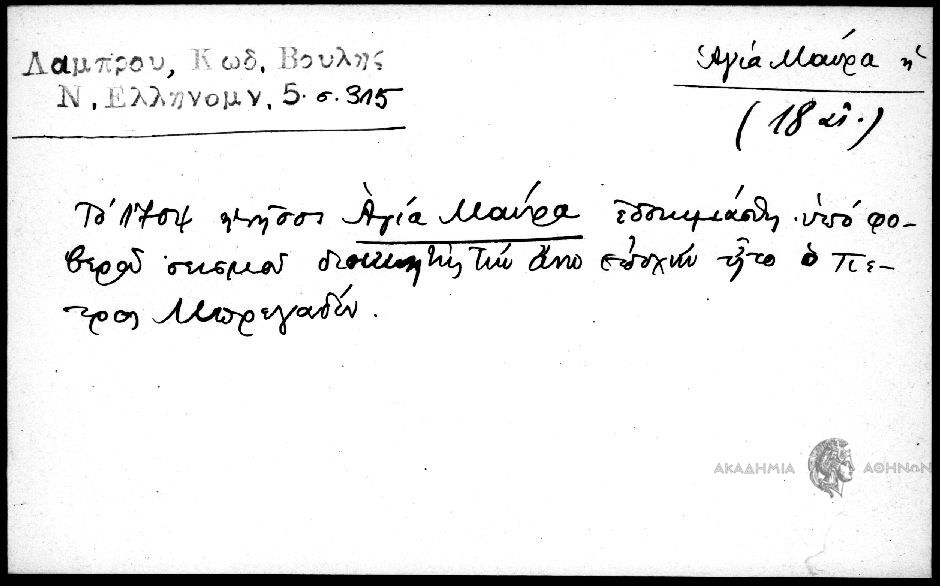 Λαμπρου, Κωδ. Βουλης
Ν. Ελληνομν. 5. σ. 315
Ἁγία Μαύρα ἡ
(18 αἰ.)
Τό ἡ νῆσος Ἁγία Μαύρα ἐδοκιμάσθη ὑπό φο-
βεροῦ σεισμοῦ διοικητής τήν ἐποχήν ἦτο ὁ Πέ-
τρος Μπρεγαδίν.
ΑΚΑΔΗΜΙΑ ΑΘΗΝΩΝ